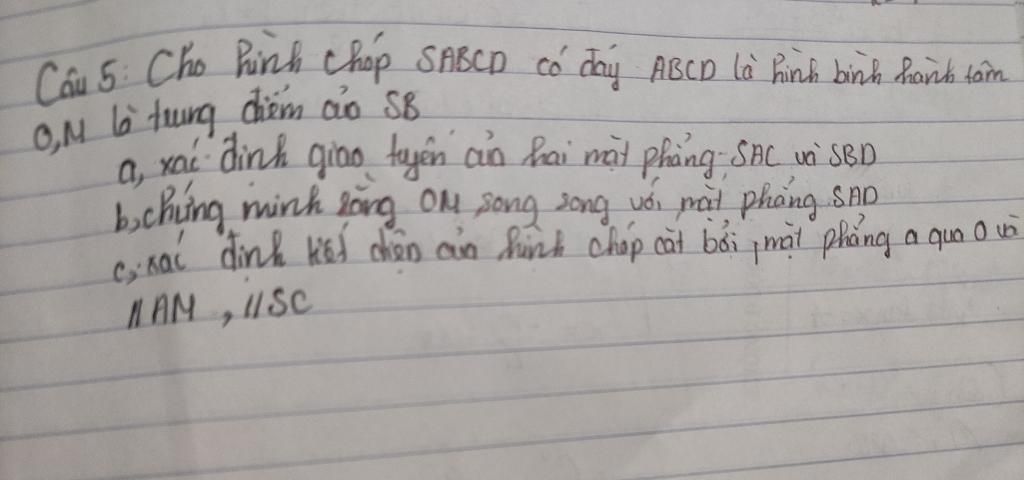 Câu 5: Cho hình chóp SABCD có đáy ABCD là hình bình hành tâm
O, M là trung điểm của SB
a, xác định giao tuyến của hai mặt phẳng SAC và SBD
b, chứng minh rằng OM song song với mặt phẳng SAD
c, xác định thiết diện của hình chóp cắt bởi mặt phẳng a qua O và
//AM, //SC